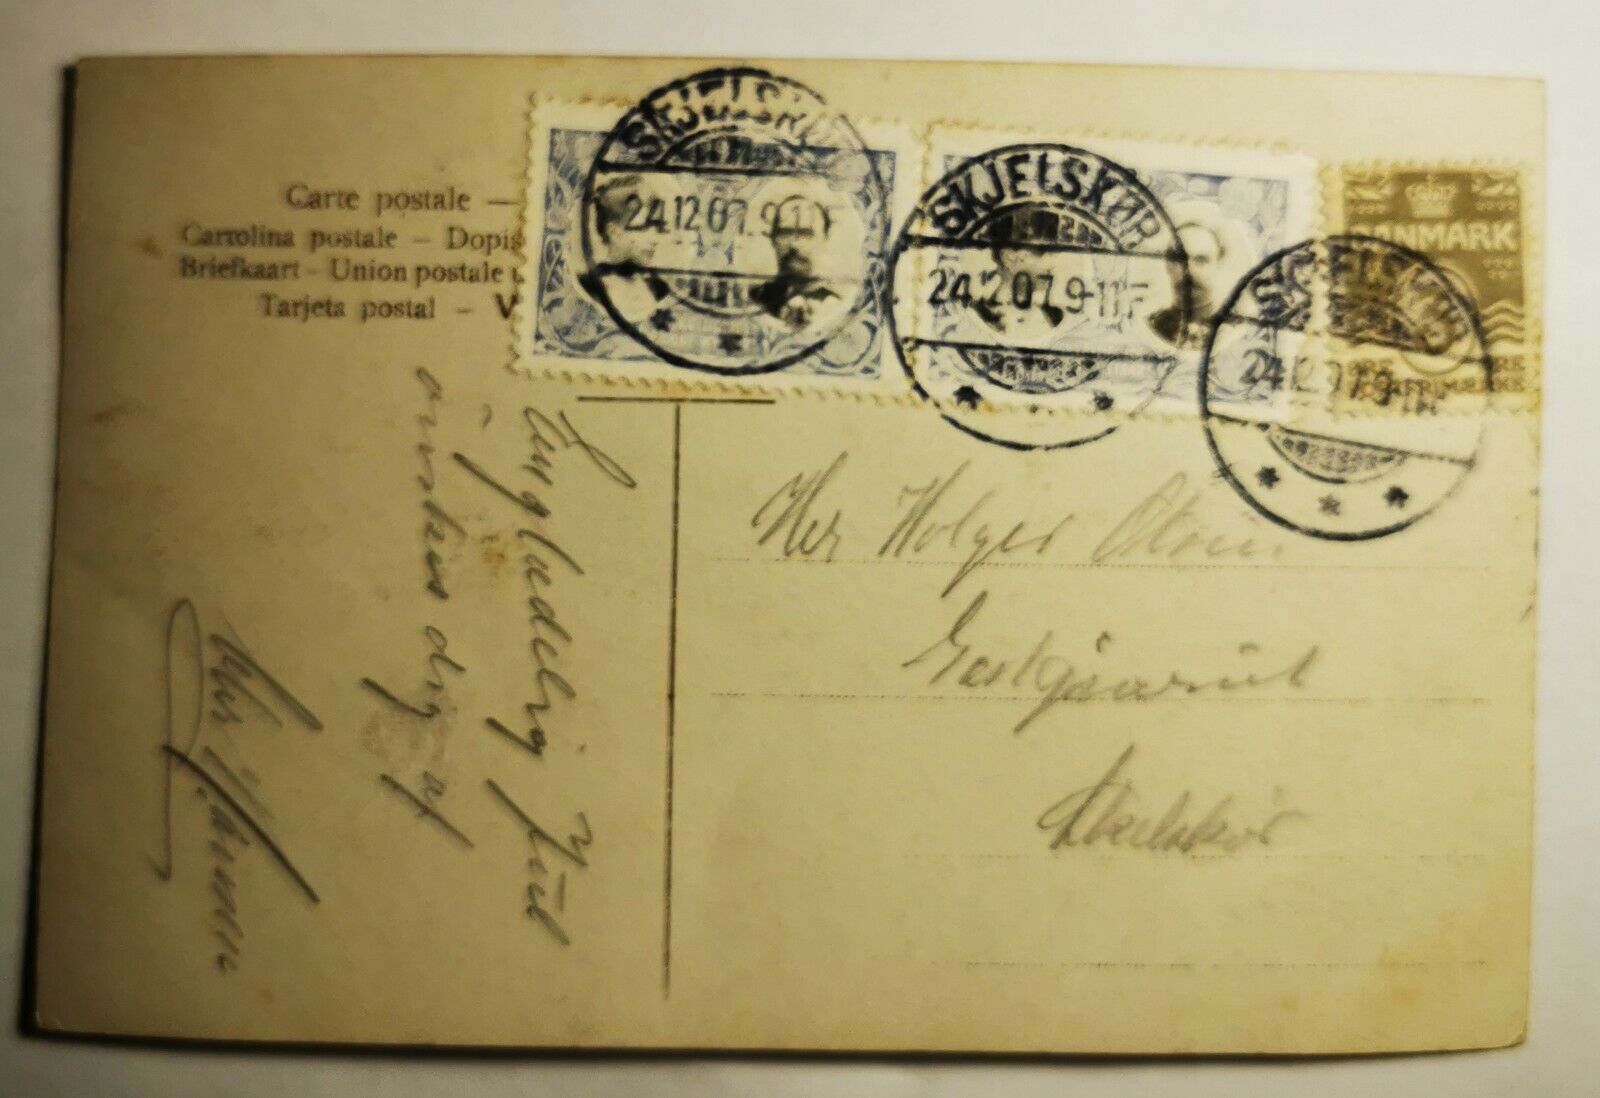 Carte postale —
Cartolina postale – Dopis
Briefkaart – Union postale u
Tarjeta postal – V
SKJELSKØR
24.12.07.9-11F
SKJELSKØR
24.12.07.9-11F
SKJELSKØR
24.12.07.9-11F
DANMARK
FRIMÆRKE
En glædelig Jul
ønskes dig af
Her Holger
Skelskør